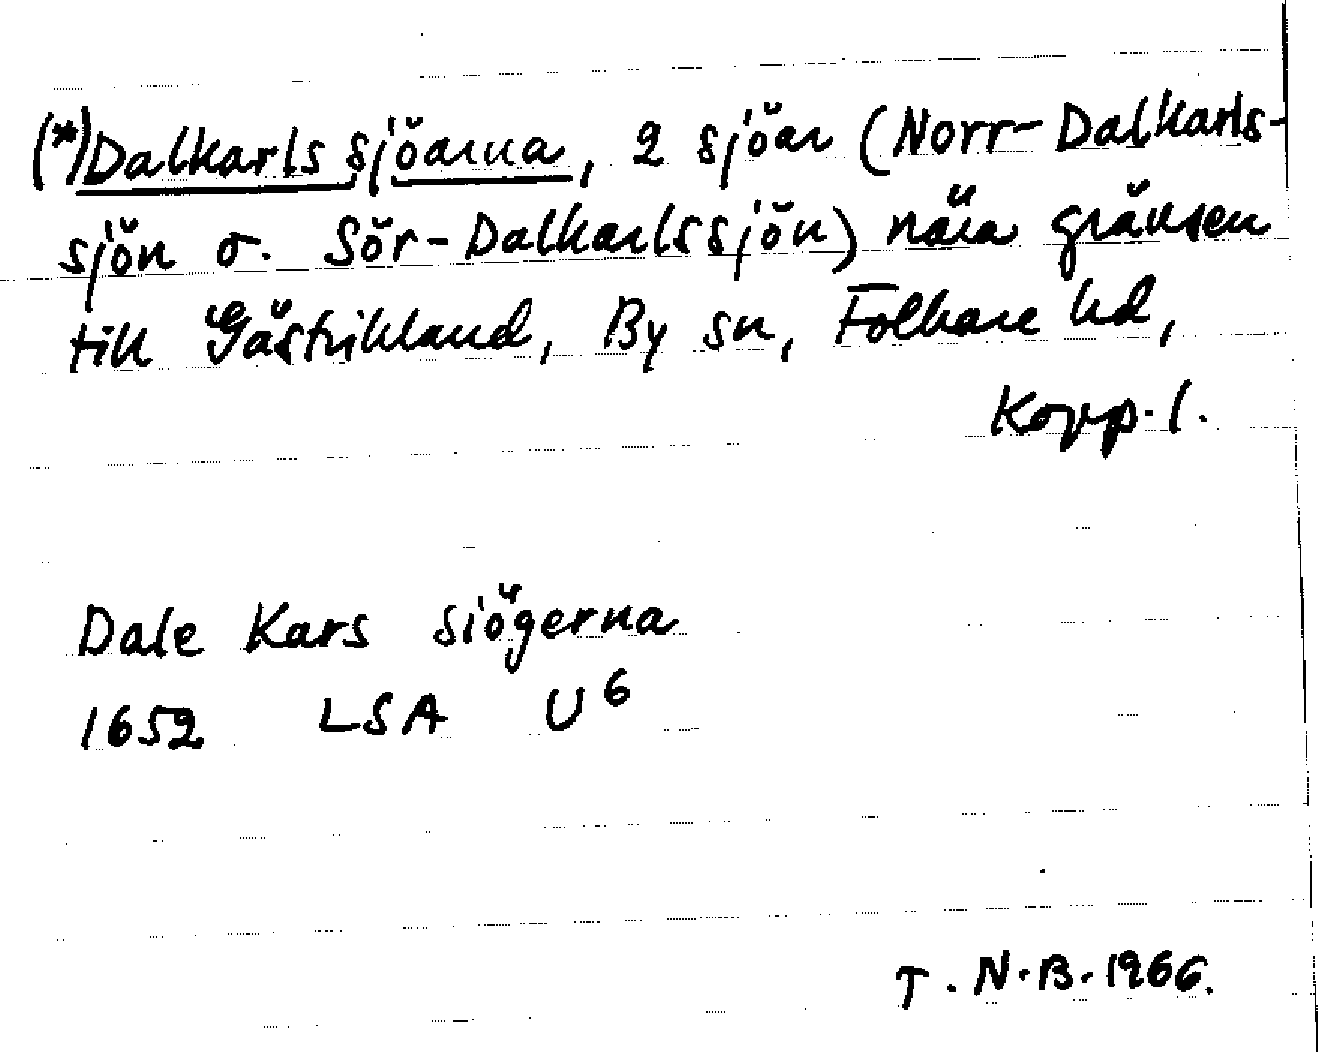 (*)Dalkarlssjöarna, 2 sjöar (Norr-Dalkarls-
sjön o. Sör-Dalkarlssjön) nära gränsen
till Gästrikland, By sn, Folkare hd,
Kopp. l.
Dale Kars Siögerna
1652 LSA U6
T. N.B. 1966.